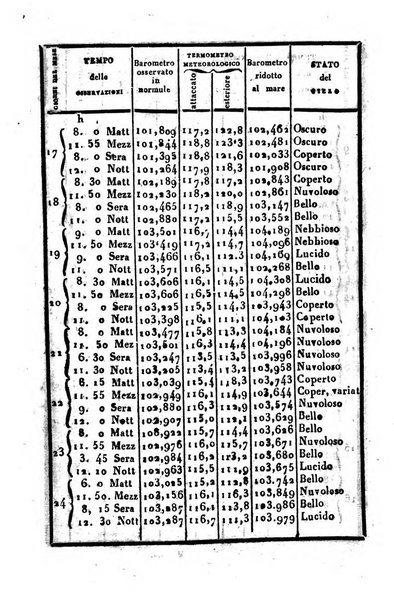 GIORNI DEL MESE
TEMPO delle OSSERVAZIONI
Barometro osservato in normule
TERMOMETRO METEOROLOGICO
attaccato
esteriore
Barometro ridotto al mare
STATO del CIELO
h
17
8. 0 Matt 101,809 117,2 122,8 102,462 Oscuro
11. 55 Mezz 101,844 118,8 123,3 102,481 Oscuro
8. 0 Sera 101,395 118,8 121,6 102,033 Coperto
12. 0 Nott 101,264 117,9 118,3 101,908 Oscuro
18
8. 30 Matt 102,189 117,8 102,843 Coperto
11. 30 Mezz 117,8 120,8 102,861 Nuvoloso
8. 0 Sera 102,465 117,2 118,9 103,147 Bello
12. 0 Nott 102,880 117,2 115,5 103,552 Bello
19
9. 0 Matt 103,501 116,7 114,4 104,189 Nebbioso
11. 50 Mezz 103,419 117,2 114,7 104,094 Nebbioso
9. 0 Sera 103,466 116,1 112,3 104,169 Lucido
12. 0 Nott 103,571 116,5 111,1 102,268 Bello
20
8. 30 Matt 103,606 115,5 111,6 104,308 Lucido
11. 50 Mezz 103,606 116,5 113,5 104,298 Bello
8. 0 Sera 103,225 115,5 114,3 103,943 Coperto
12. 0 Nott 103,398 116,1 104,103 Coperto
21
8. 0 Matt 103,477 115,8 113,3 104,184 Nuvoloso
12. 50 Mez 103,501 114,4 114,4 104,190 Nuvoloso
6. 30 Sera 103,247 113,5 113,5 103,996 Nuvoloso
11. 30 Nott 103,205 113,4 113,3 103,958 Nuvoloso
22
6. 15 Matt 103,039 115,4 118,3 103,743 Coperto
11. 55 Mezz 102,949 116,1 103,644 Coper, variat
9. 0 Sera 102,880 116,1 103,574 Nuvoloso
12. 0 Nott 102,907 112,1 103,626 Bello
23
8. 0 Matt 102,922 115,7 114,4 103,626 Bello
11. 55 Mezz 102,976 115,7 114,9 103,671 Nuvoloso
3. 45 Sera 102,984 116,2 113,2 103,680 Bello
12. 10 Nott 102,963 115,5 111,9 103,675 Lucido
24
6. 0 Matt 103,025 115,2 112,8 103.742 Bello
11. 50. Mezz 103,156 116,1 116,3 103,849 Nuvoloso
8, 15 Sera 103,287 116,1 112,9 103.986 Bello
12. 30 Nott 103,287 116,7 111,3 103.979 Lucido